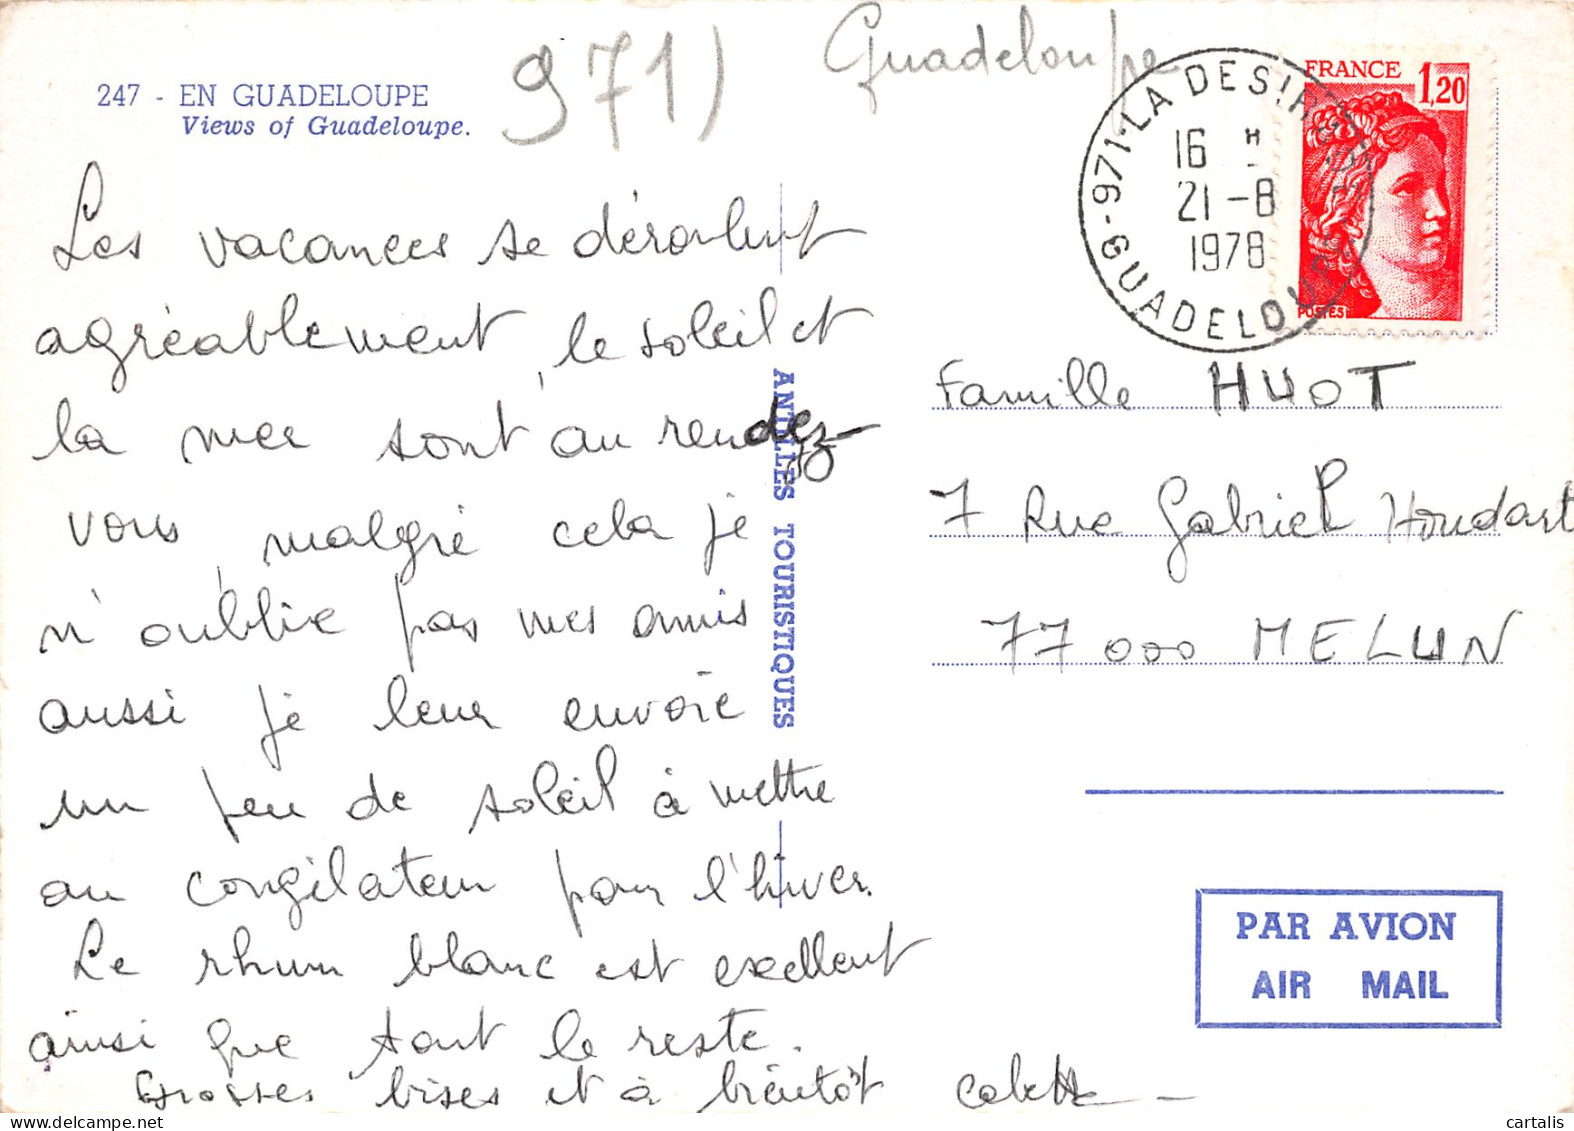 971) Guadeloupe
247 - EN GUADELOUPE
Views of Guadeloupe.
971-LA DESIRADE
16 H
21-8
1978
GUADELOUPE
FRANCE 1,20
POSTES
Les vacances se déroulent
agréablement, le soleil et
la mer sont au rendez-
vous, malgré cela je
n'oublie pas mes amis
aussi je leur envoie
un peu de soleil à mettre
au congilateur pour l'hiver.
Le rhum blanc est excellent
ainsi que tout le reste.
Grosses bises et à bientôt Colette
ANTILLES TOURISTIQUES
Famille HUOT
7 Rue Gabriel Houdart
77000 MELUN
PAR AVION
AIR MAIL
cartalis